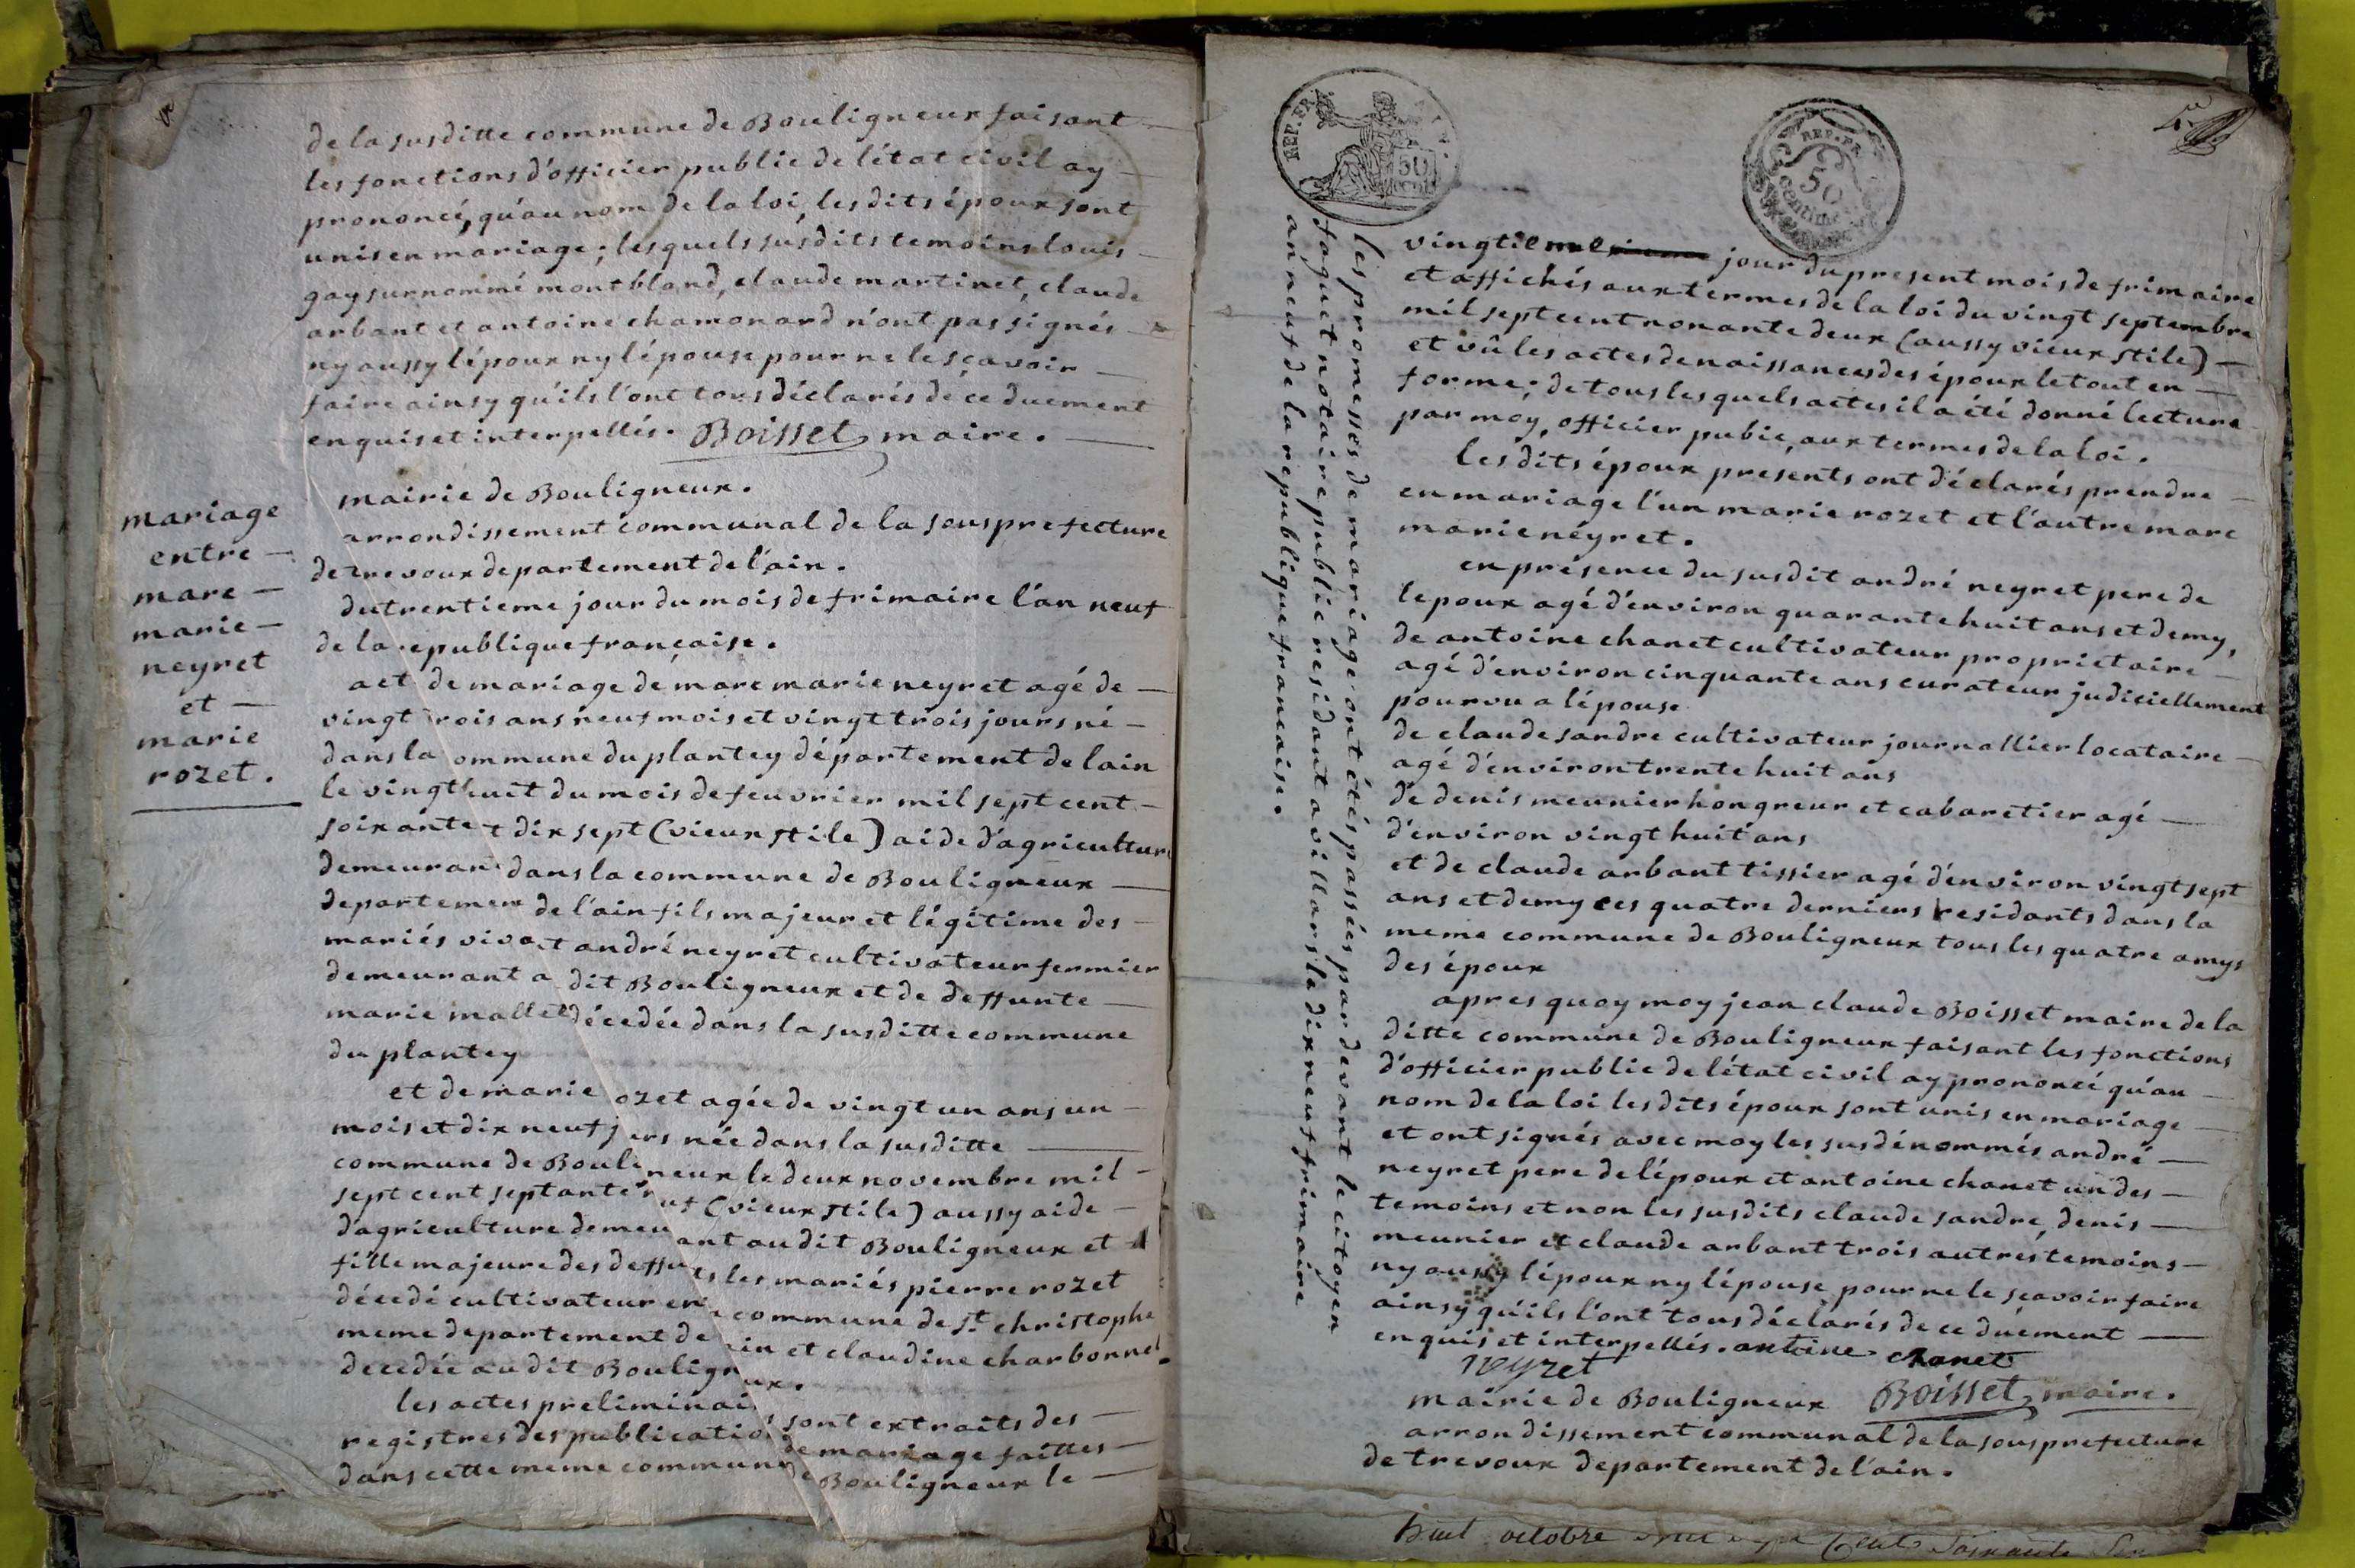 de la susditte commune de Bouligneux faisant
les fonctions d'officier public de l'état civil ay
prononcé, qu'au nom de la loi, les dits époux sont
unis en mariage; lesquels susdits temoins louis
gay surnommé montbland, claude martinet, claude
arbant et antoine chamonard n'ont pas signés
ny aussy l'époux ny l'épouse pour ne le sçavoir
faire ainsy qu'ils l'ont tous déclarés de ce duement
enquis et interpellés. Boisset maire.
mariage
entre
marc
marie
neyret
et
marie
rozet.
mairie de Bouligneux.
arrondissement communal de la sousprefecture
de trevoux departement de l'ain.
du trentieme jour du mois de frimaire l'an neuf
de la republique française.
act de mariage de marc marie neyret agé de
vingt trois ans neuf mois et vingt trois jours né
dans la ommune du plantey département de lain
le vingt huit du mois de feuvrier mil sept cent
soixante t dix sept (vieux stile) aide d'agriculture
demeurant dans la commune de Bouligneux
departemen de l'ain fils majeur et légitime des
mariés vivat andré neyret cultivateur fermier
demeurant a dit Bouligneux et de deffunte
marie mallet décedée dans la susditte commune
du plantey
et de marie ozet agée de vingt un ans un
mois et dix neuf j urs née dans la susditte
commune de Bouli neux le deux novembre mil
sept cent septante n uf (vieux stile) aussy aide
d'agriculture demeu ant au dit Bouligneux et
fille majeure des deffu ts les mariés pierre rozet
décedé cultivateur en commune de st. christophe
meme departement de ain et claudine charbonnel
decedée au dit Boulign ux.
les actes preliminai s sont extraits des
registres des publicatio de mariage faittes
dans cette meme commune de Bouligneux le
REP. FRA.
50
CENT.
REP. FRA.
50
centimes
vingtieme jour du present mois de frimaire
et affichés aux termes de la loi du vingt septembre
mil sept cent nonante deux (aussy vieux stile)
et vû les actes de naissances des époux le tout en
forme; de tous lesquels actes il a été donné lecture
par moy, officier pubic, aux termes de la loi.
les dits époux presents ont déclarés prendre
en mariage l'un marie rozet et l'autre marc
marie néyret.
en présence du susdit andré neyret pere de
lepoux agé d'environ quarante huit ans et demy,
de antoine chanet cultivateur proprietaire
agé d'environ cinquante ans curateur judiciellement
pourvu a lépouse
de claude sandre cultivateur journallier locataire
agé d'environ trente huit ans
de denis meunier hongreur et cabaretier agé
d'environ vingt huit ans
et de claude arbant tissier agé d'environ vingt sept
ans et demy ces quatre derniers residants dans la
meme commune de Bouligneux tous les quatre amys
des époux
apres quoy moy jean claude Boisset maire de la
ditte commune de Bouligneux faisant les fonctions
d'officier public de l'état civil ay prononcé qu'au
nom de la loi les dits époux sont unis en mariage
et ont signés avec moy les susdénommés andré
neyret pere de l'époux et antoine chanet un des
temoins et non les susdits claude sandre, denis
meunier et claude arbant trois autres temoins
ny aussy l'époux ny l'épouse pour ne le scavoir faire
ainsy qu'ils l'ont tous déclarés de ce duement
enquis et interpellés. antoine chanet
neyret
mairie de Bouligneux Boisset maire.
arrondissement communal de la sousprefecture
de trevoux departement de l'ain.
les promesses de mariage ont étés passées par devant le citoyen
faguet notaire public residant a villars le dix neuf frimaire
an neuf de la republique francaise.
huit octobre cent soixante